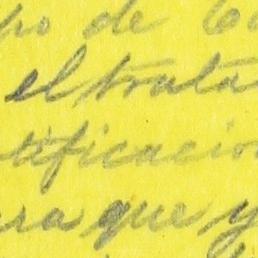 po de Co
el trata
tificacion
ara que y